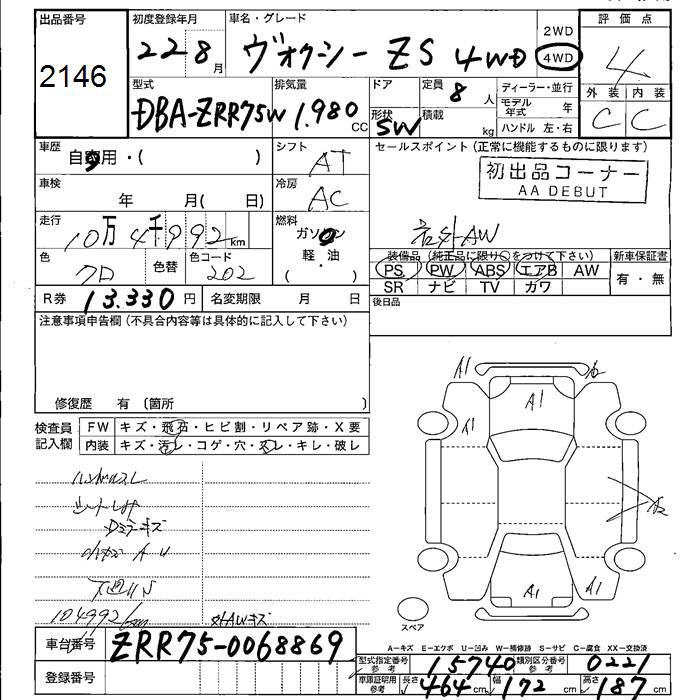 出品番号
2146
初度登録年月
22 8月
車名・グレード
ヴォクシー ZS 4WD
2WD
4WD
評価点
4
外装 内装
C C
型式
DBA-ZRR75W
排気量
1.980 CC
ドア
形状
SW
定員
8 人
積載
kg
ディーラー・並行
モデル年式 年
ハンドル 左・右
車歴
自家用・( )
シフト
AT
セールスポイント(正常に機能するものに限ります)
初出品コーナー
AA DEBUT
車検
年 月( 日)
冷房
AC
走行
10万4千992km
燃料
ガソリン
軽・油
( )
社外AW
色
クロ
色替
色コード
202
装備品(純正品に限り○をつけて下さい)
PS PW ABS エアB AW
SR ナビ TV カワ
新車保証書
有・無
R券 13.330円
名変期限 月 日
後日品
注意事項申告欄(不具合内容等は具体的に記入して下さい)
修復歴 有(箇所
検査員記入欄
FW キズ・飛石・ヒビ割・リペア跡・X要
内装 キズ・汚レ・コゲ・穴・スレ・キレ・破レ
ハンドルスレ
シートシワ
Dミラーキズ
下廻りS
104992km
外AWキズ
A1
A2
A1
A1
A2
A1
A1
スペア
車台番号
ZRR75-0068869
登録番号
A-キズ E-エクボ U-凹み W-補修跡 S-サビ C-腐食 XX-交換済
型式指定番号 参考 15740
類別区分番号 参考 0221
車庫証明用 参考 長さ 464cm 幅 172cm 高さ 187cm